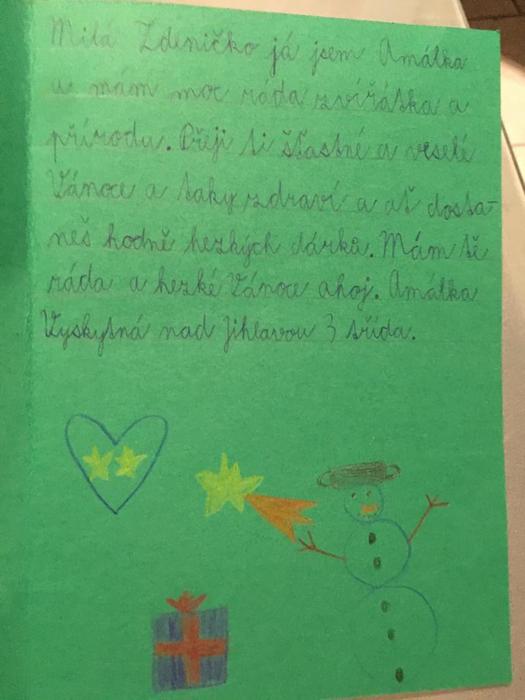 Milá Zdeničko já jsem Amálka
a mám moc ráda zvířátka a
přírodu. Přeji ti šťastné a veselé
Vánoce a taky zdraví a ať dosta-
neš hodně hezkých dárků. Mám tě
ráda a hezké Vánoce ahoj. Amálka
Vyskytná nad Jihlavou 3 třída.